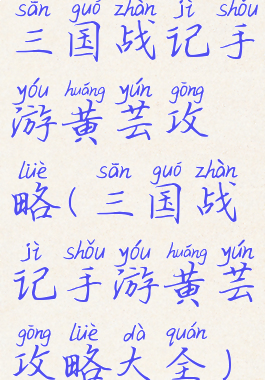 sān guó zhàn jì shǒu
三国战记手
yóu huáng yún gōng
游黄芸攻
lüè sān guó zhàn
略(三国战
jì shǒu yóu huáng yún
记手游黄芸
gōng lüè dà quán
攻略大全)